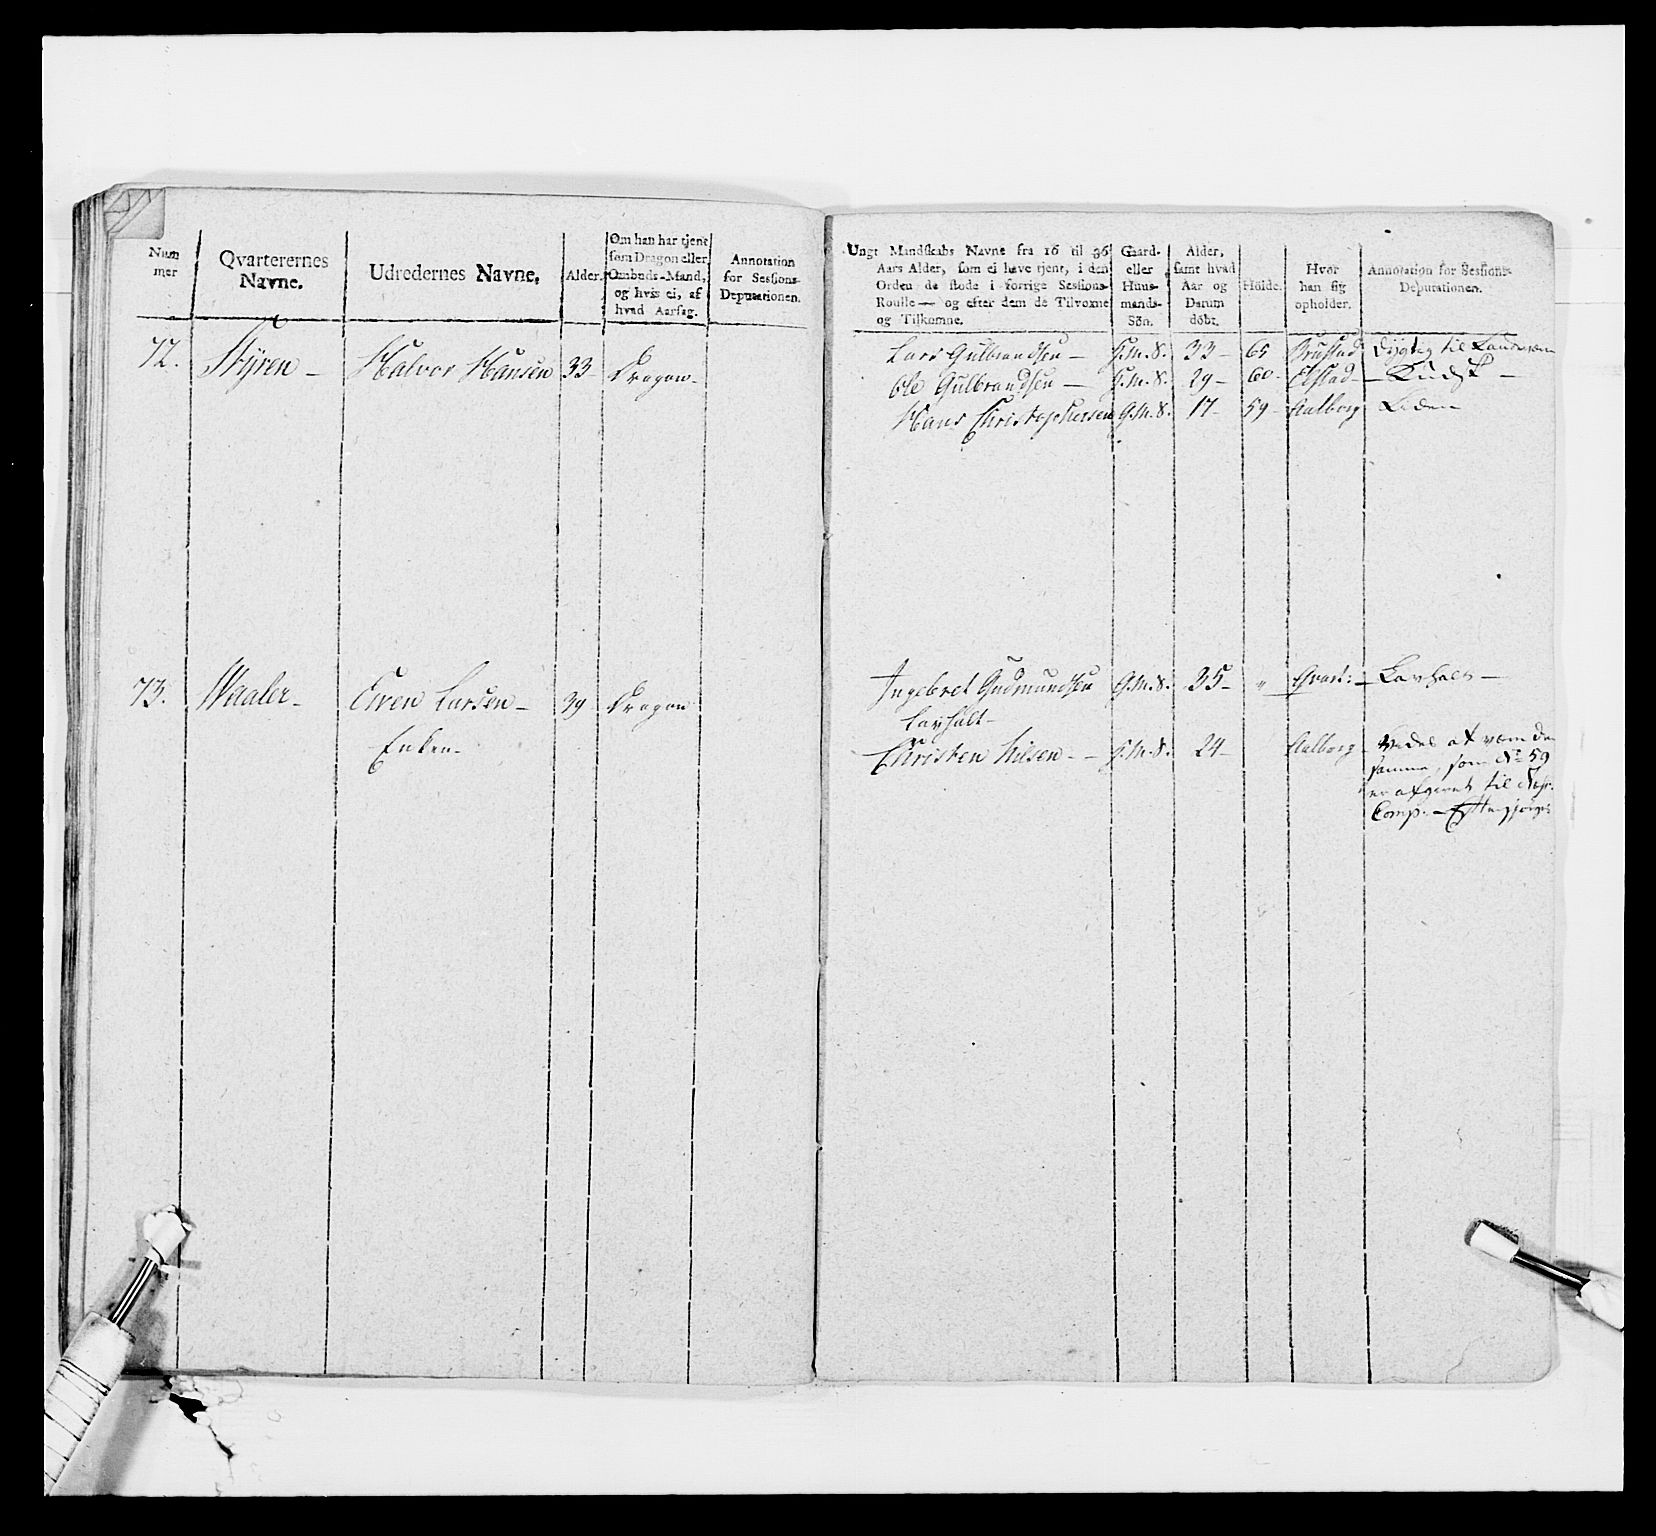 Num
mer
Qvarterernes
Navne.
Udredernes Navne.
Alder.
Om han har tjent
som Dragon eller
Ombuds-Mand,
og hvis ei, af
hvad Aarsag.
Annotation
for Sessions-
Deputationen.
Ungt Mandskabs Navne fra 16 til 36
Aars Alder, som ei have tjent, i den
Orden de stode i forrige Sessions-
Roulle — og efter dem de Tilvoxne
og Tilkomne.
Gaard-
eller
Huus-
mands-
Sön.
Alder,
samt hvad
Aar og
Datum
döbt.
Höide.
Hvor
han sig
opholder.
Annotation for Sessions-
Deputationen.
72. Styren - Halvor Hansen 33 Dragon -
Lars Gulbrandsen - H.M.S. 33 - 65 Brustad Dygtig til Landeværn
Ole Gulbrandsen - H.M.S. 29 - 60 - Ekstad -
Hans Christophersen G.M.S. 17 - 59 - Aalborg Liden
73. Waaler - Even Larsen - 39 Dragon
Enken -
Ingebret Gudmundsen G.M.S. 35 - " Lavhalt -
Lavhalt -
Christen Nilsen - - H.M.S. 24 - Aalborg - at være den
samme, som No 59
er afgivet til
Comp. -